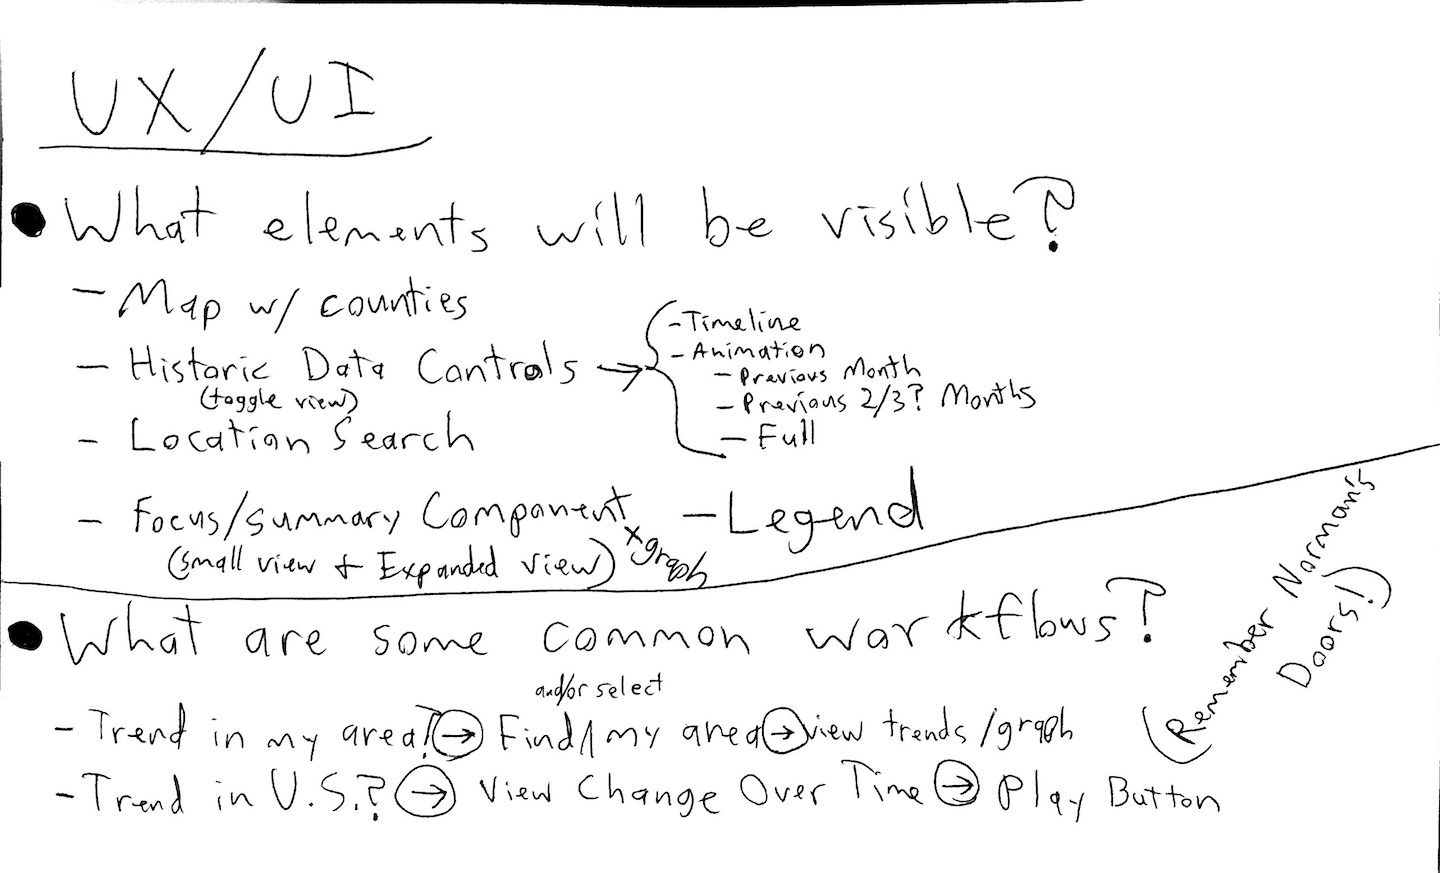 UX/UI
● What elements will be visible?
- Map w/ counties
- Historic Data Controls →
(toggle view)
- Timeline
- Animation
- Previous Month
- Previous 2/3? Months
- Full
- Location Search
- Focus/summary Component
(small view + Expanded view)
x graph
- Legend
● What are some common workflows?
- Trend in my area? → Find/my area → view trends/graph
and/or select
- Trend in U.S.? → View Change Over Time → Play Button
(Remember Norman's
Doors!)